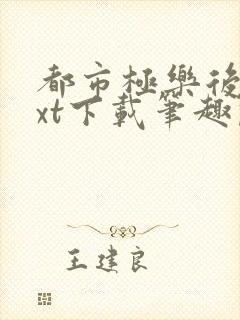 都市極樂後
xt下載筆趣
王建良